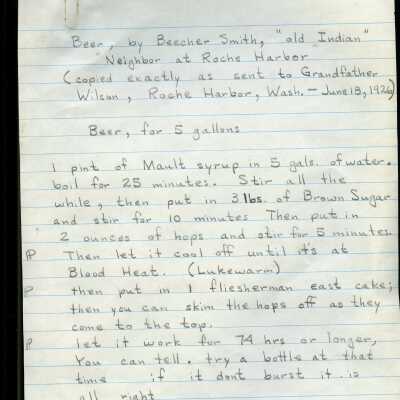 Beer, by Beecher Smith, "old Indian"
Neighbor at Roche Harbor
(copied exactly as sent to Grandfather
Wilson, Roche Harbor, Wash. - June 18, 1926)
Beer, for 5 gallons
1 pint of Mault syrup in 5 gals. of water.
boil for 25 minutes. Stir all the
while, then put in 3 lbs. of Brown Sugar
and stir for 10 minutes Then put in
2 ounces of hops and stir for 5 minutes.
Then let it cool off until it's at
Blood Heat. (Lukewarm)
then put in 1 fliesherman east cake;
then you can skim the hops off as they
come to the top.
let it work for 74 hrs or longer,
You can tell. try a bottle at that
time if it dont burst it is
all right